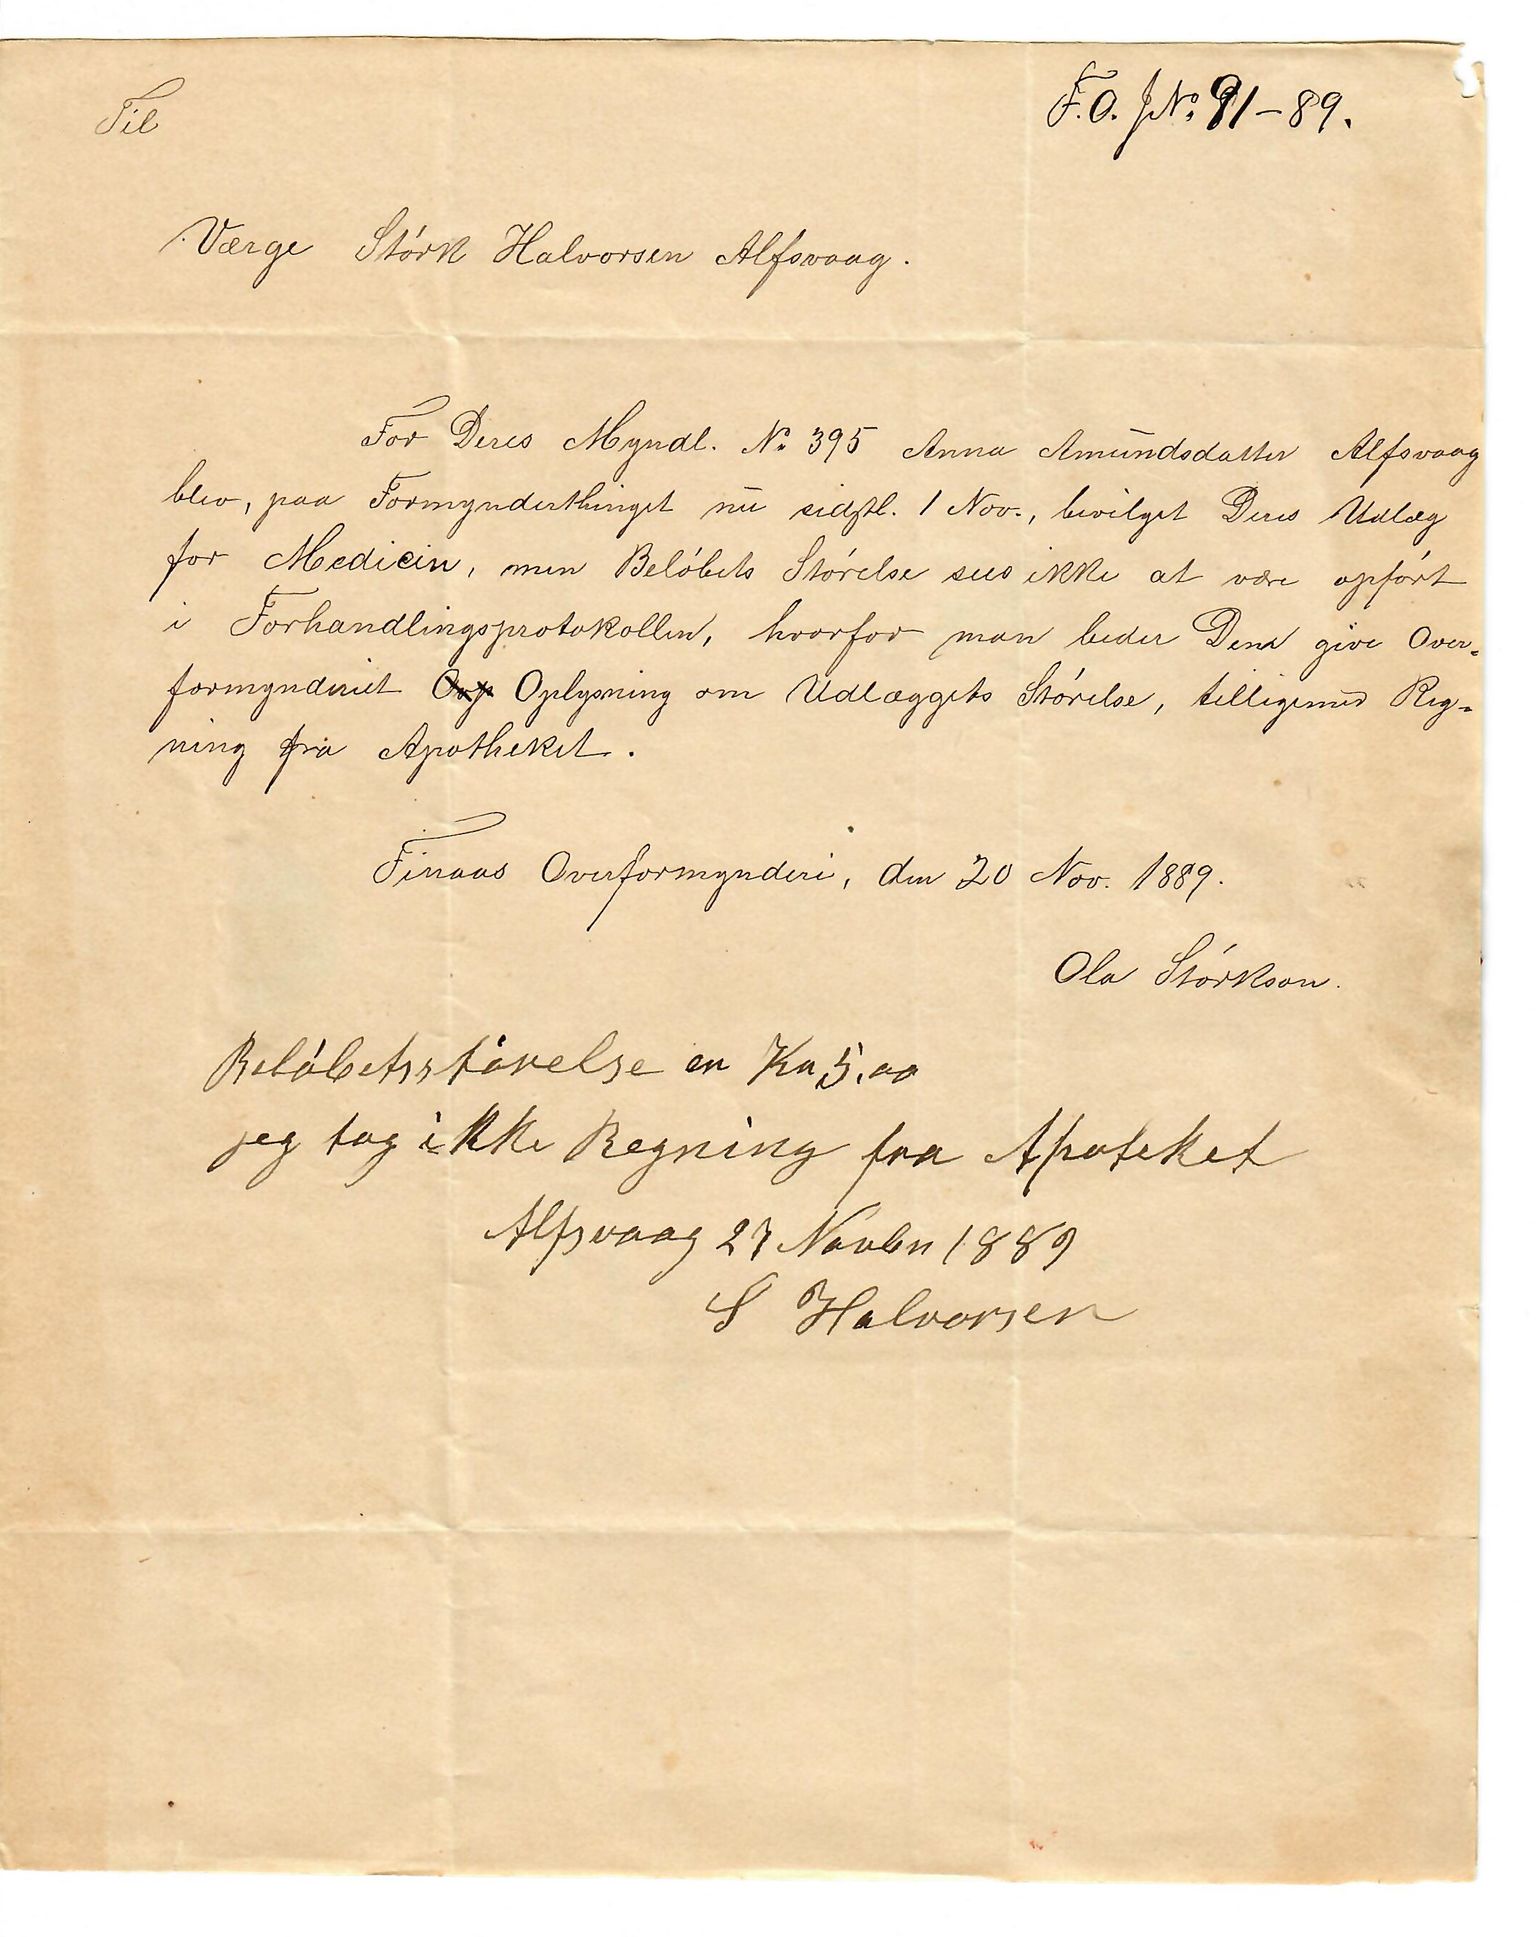 Til
F.O. JNo. 91-89.
Værge Størk Halvorsen Alfsvaag.
For Deres Myndl. No. 395 Anna Amundsdatter Alfsvaag
blev, paa Formynderthinget nu sidstl. 1 Nov., bevilget Deres Udlæg
for Medicin, men Beløbets Størelse sees ikke at være opført
i Forhandlingsprotokollen, hvorfor man beder Dem give Over-
formynderiet Oplysning om Udlæggets Størelse, tilligemed Reg-
ning fra Apotheket.
Finaas Overformynderi, den 20 Nov. 1889.
Ola Størkson.
Beløbetsstørelse er Kr 5,00
jeg tog ikke Regning fra Apoteket
Alfsvaag 27 Novbr 1889
S Halvorsen